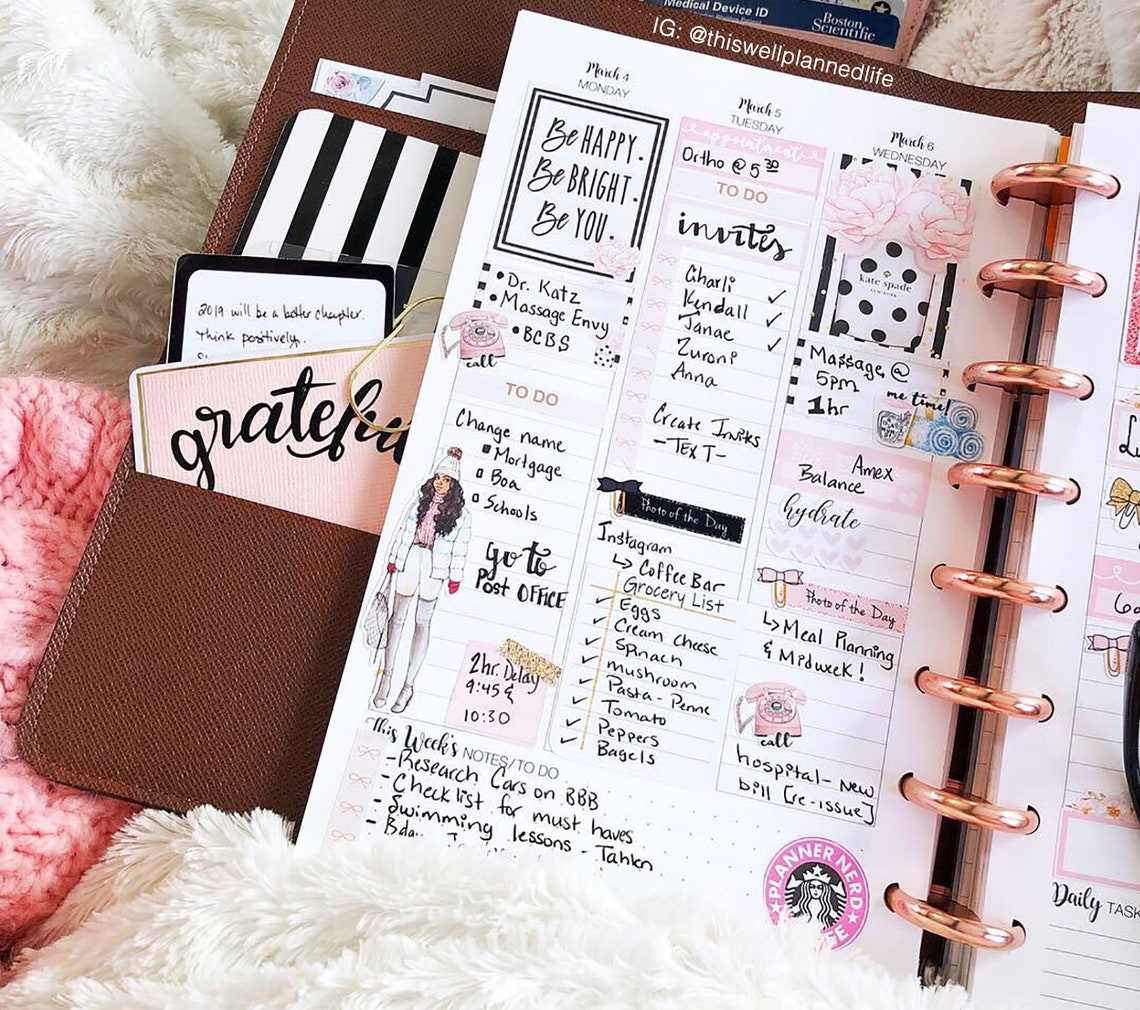 Medical Device ID
Boston
Scientific
IG: @thiswellplannedlife
2019 will be a better chapter.
Think positively.
grateful
March 4
MONDAY
Be HAPPY.
Be BRIGHT.
Be YOU.
Dr. Katz
Massage Envy
BCBS
call
TO DO
Change name
Mortgage
Boa
Schools
Go to
Post OFFICE
2hr. Delay
9:45 &
10:30
March 5
TUESDAY
appointment
Ortho @ 5 30
TO DO
invites
Charli ✓
Kendall ✓
Janae ✓
Zuroni
Anna
Create Invites
-TEXT-
Photo of the Day
Instagram
↳ Coffee Bar
Grocery List
✓ Eggs
✓ Cream cheese
✓ Spinach
✓ mushroom
✓ Pasta - Penne
✓ Tomato
✓ Peppers
✓ Bagels
March 6
WEDNESDAY
kate spade
NEW YORK
Massage @
5pm
1hr
me time!
Amex
Balance
hydrate
Photo of the Day
↳ Meal Planning
& Midweek!
call
hospital - new
bill [re-issue]
This Week's NOTES/TO DO
- Research Cars on BBB
- Checklist for must haves
- Swimming lessons - Tahlen
PLANNER NERD
Daily TASK